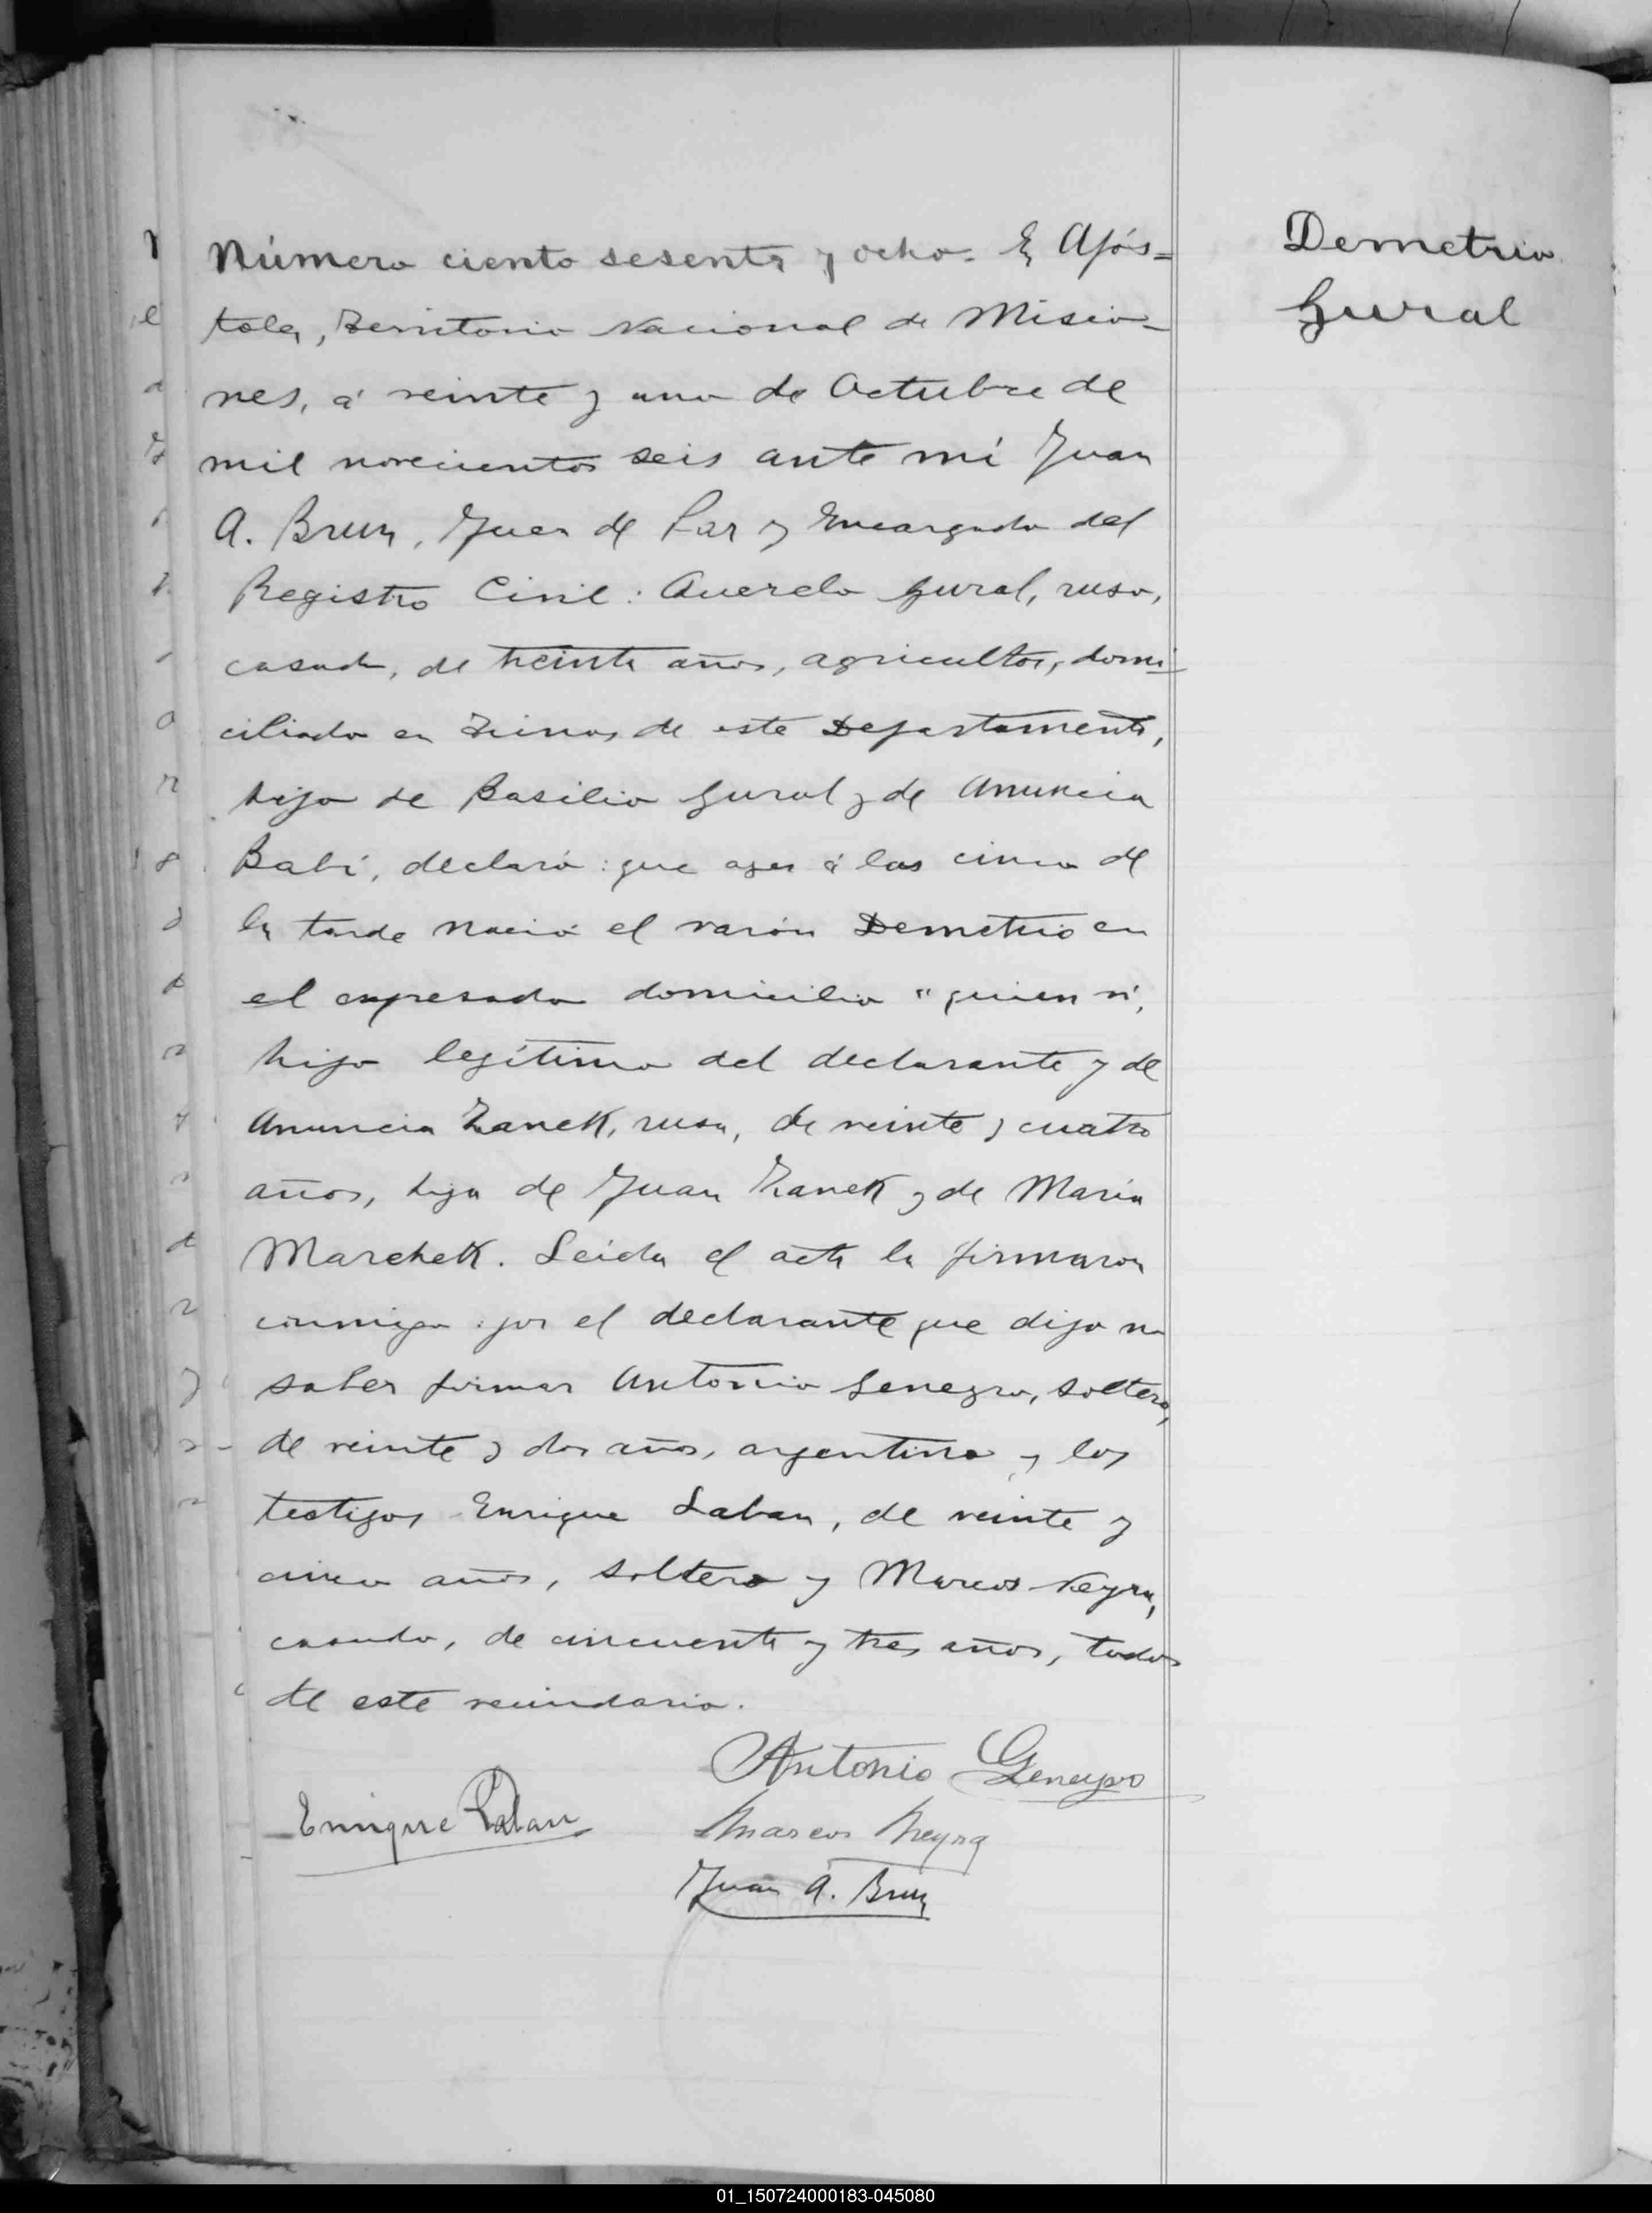 Número ciento sesenta y ocho. En Após=
toles, Territorio Nacional de Misio-
nes, á veinte y uno de Octubre de
mil novecientos seis ante mi Juan
A. Brun, Juez de Paz y Encargado del
Registro Civil: Aurelo Gural, ruso,
casado, de treinta años, agricultor, domi-
ciliado en Trinos, de este Departamento,
hijo de Basilio Gural y de Anuncia
Babí, declaró: que ayer á las cinco de
la tarde nació el varón Demetrio en
el expresado domicilio "quien ví,
hijo legítimo del declarante y de
Anuncia Zanek, rusa, de veinte y cuatro
años, hija de Juan Zanek y de María
Marchek. Leida el acta la firmaron
conmigo: por el declarante que dijo no
saber firmar Antonio Genezro, soltero,
de veinte y dos años, argentino y los
testigos Enrique Laban, de veinte y
cinco años, soltero y Marcos Neyra,
casado, de cincuenta y tres años, todos
de este vecindario.
Antonio
Enrique Laban
Marcos Neyra
Juan A. Brun
Demetrio
Gural
01_150724000183-045080